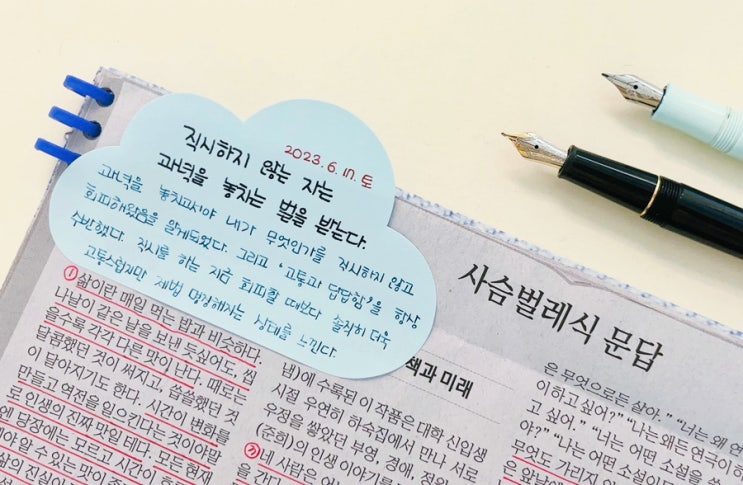 2023.6.17.토
직시하지 않는 자는
과녁을 놓치는 벌을 받는다.
과녁을 놓치고서야 내가 무엇인가를 직시하지 않고
회피해왔음을 알게되었다. 그리고 '고통과 답답함'을 항상
수반했다. 직시를 하는 지금 회피할 때보다 솔직히 더욱
고통스럽지만 제법 명징해지는 상태를 느낀다.
사슴벌레식 문답
① 삶이란 매일 먹는 밥과 비슷하다.
나날이 같은 날을 보낸 듯싶어도, 씹
을수록 각각 다른 맛이 난다. 때로는
덤덤했던 것이 써지고, 씁쓸했던 것
이 달아지기도 한다. 시간이 변화를
만들고 역전을 일으킨다는 것이야말
로 인생의 진짜 맛일 테다. 모든 현재
엔 당장에는 모르고 시간이 흐
야 알 수 있는 맛이
책과 미래
냄)에 수록된 이 작품은 대학 신입생
시절 우연히 하숙집에서 만나 서로
우정을 쌓았던 부영, 경애, 정원
(준희)의 인생 이야기를
② 네 사람은
은 무엇으로든 살아." "너는 왜 연
이 하고 싶어?" "나는 왜든 연극이 하
고 싶어." "너는 어떤 소설을 쓰
야?" "나는 어떤 소설이든
무엇도 가리지